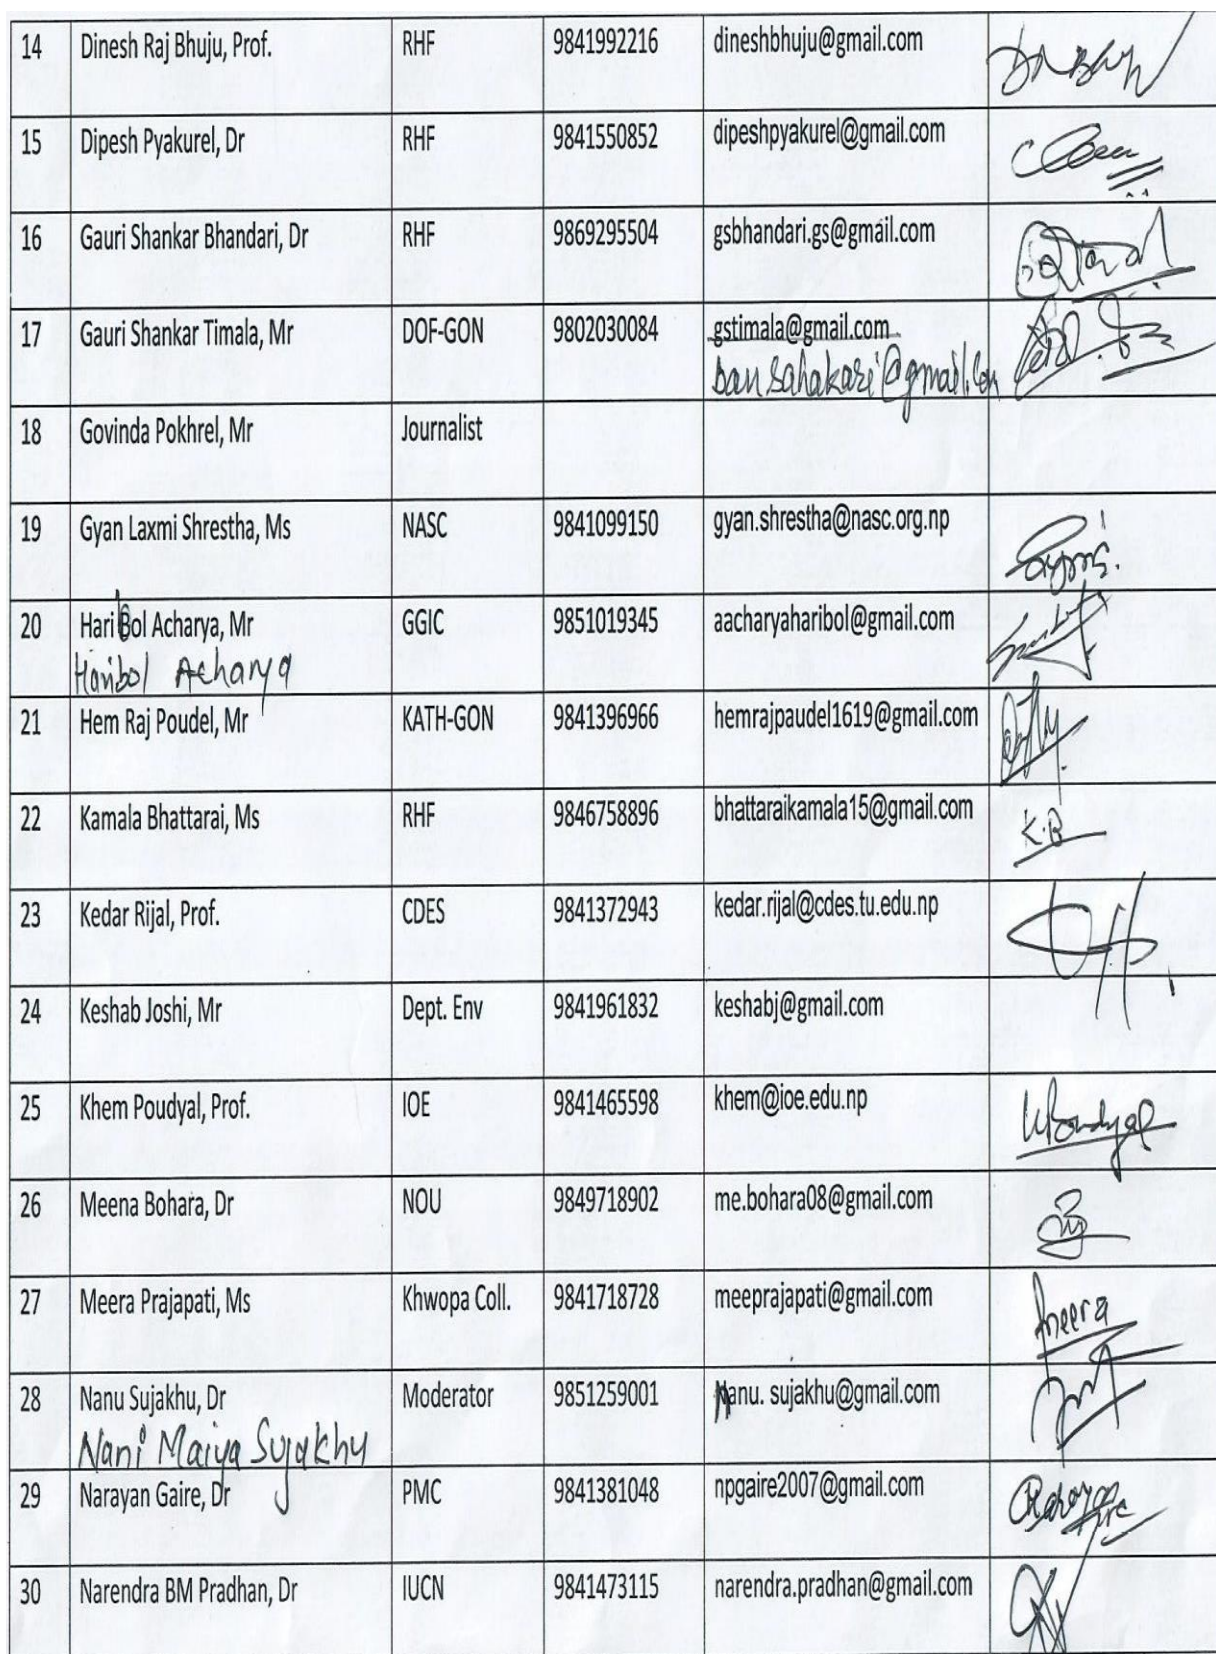 14 Dinesh Raj Bhuju, Prof. RHF 9841992216 dineshbhuju@gmail.com
15 Dipesh Pyakurel, Dr RHF 9841550852 dipeshpyakurel@gmail.com
16 Gauri Shankar Bhandari, Dr RHF 9869295504 gsbhandari.gs@gmail.com
17 Gauri Shankar Timala, Mr DOF-GON 9802030084 gstimala@gmail.com
bansahakari@gmail.com
18 Govinda Pokhrel, Mr Journalist
19 Gyan Laxmi Shrestha, Ms NASC 9841099150 gyan.shrestha@nasc.org.np
20 Hari Bol Acharya, Mr GGIC 9851019345 aacharyaharibol@gmail.com
Haribol Acharya
21 Hem Raj Poudel, Mr KATH-GON 9841396966 hemrajpaudel1619@gmail.com
22 Kamala Bhattarai, Ms RHF 9846758896 bhattaraikamala15@gmail.com K.B
23 Kedar Rijal, Prof. CDES 9841372943 kedar.rijal@cdes.tu.edu.np
24 Keshab Joshi, Mr Dept. Env 9841961832 keshabj@gmail.com
25 Khem Poudyal, Prof. IOE 9841465598 khem@ioe.edu.np
26 Meena Bohara, Dr NOU 9849718902 me.bohara08@gmail.com
27 Meera Prajapati, Ms Khwopa Coll. 9841718728 meeprajapati@gmail.com Meera
28 Nanu Sujakhu, Dr Moderator 9851259001 nanu. sujakhu@gmail.com
Nani Maiya Sujakhu
29 Narayan Gaire, Dr PMC 9841381048 npgaire2007@gmail.com
30 Narendra BM Pradhan, Dr IUCN 9841473115 narendra.pradhan@gmail.com